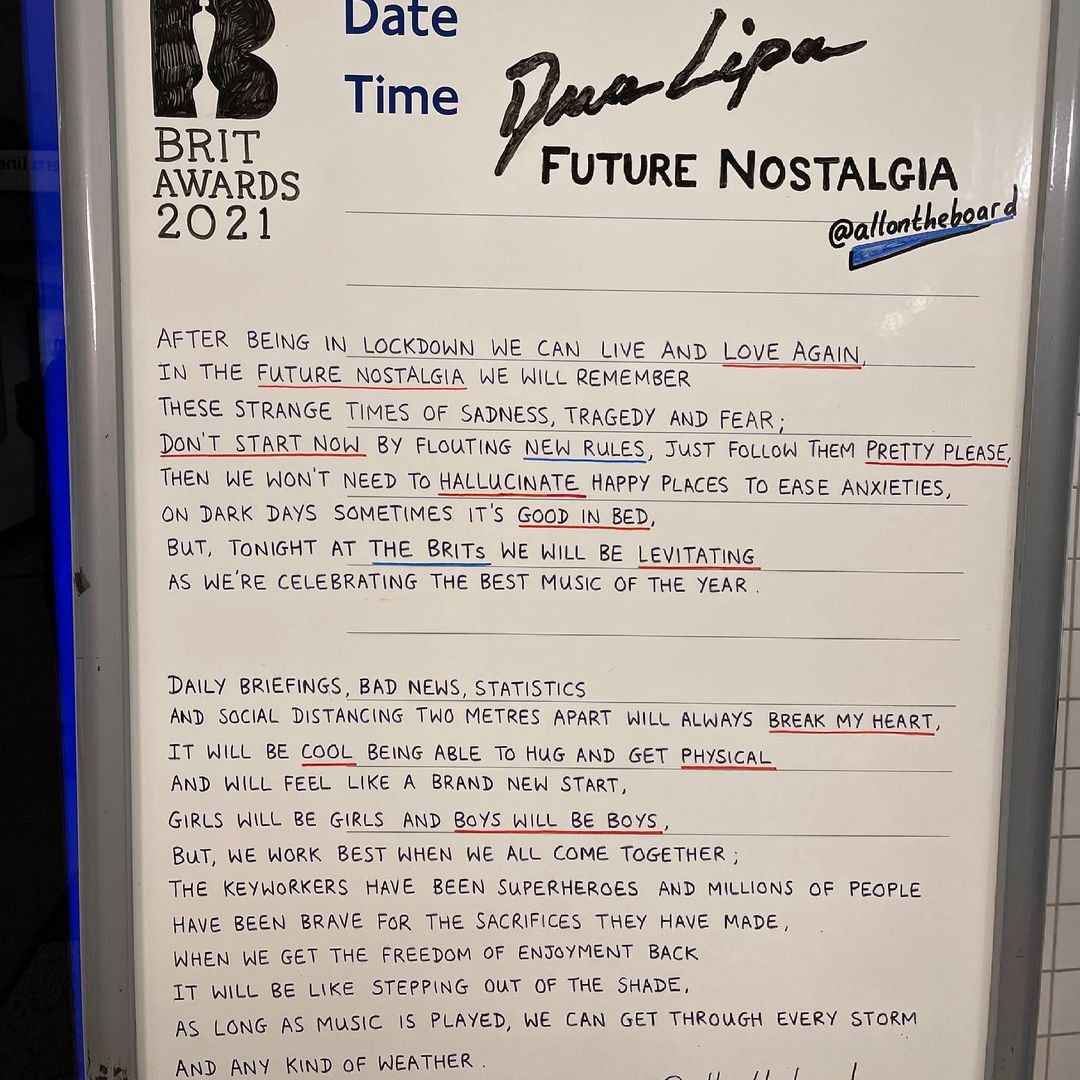 Date
Time
Dua Lipa
BRIT
AWARDS
2021
FUTURE NOSTALGIA
@allontheboard
AFTER BEING IN LOCKDOWN WE CAN LIVE AND LOVE AGAIN,
IN THE FUTURE NOSTALGIA WE WILL REMEMBER
THESE STRANGE TIMES OF SADNESS, TRAGEDY AND FEAR;
DON'T START NOW BY FLOUTING NEW RULES, JUST FOLLOW THEM PRETTY PLEASE,
THEN WE WON'T NEED TO HALLUCINATE HAPPY PLACES TO EASE ANXIETIES,
ON DARK DAYS SOMETIMES IT'S GOOD IN BED,
BUT, TONIGHT AT THE BRITs WE WILL BE LEVITATING
AS WE'RE CELEBRATING THE BEST MUSIC OF THE YEAR.
DAILY BRIEFINGS, BAD NEWS, STATISTICS
AND SOCIAL DISTANCING TWO METRES APART WILL ALWAYS BREAK MY HEART,
IT WILL BE COOL BEING ABLE TO HUG AND GET PHYSICAL
AND WILL FEEL LIKE A BRAND NEW START,
GIRLS WILL BE GIRLS AND BOYS WILL BE BOYS,
BUT, WE WORK BEST WHEN WE ALL COME TOGETHER;
THE KEYWORKERS HAVE BEEN SUPERHEROES AND MILLIONS OF PEOPLE
HAVE BEEN BRAVE FOR THE SACRIFICES THEY HAVE MADE,
WHEN WE GET THE FREEDOM OF ENJOYMENT BACK
IT WILL BE LIKE STEPPING OUT OF THE SHADE,
AS LONG AS MUSIC IS PLAYED, WE CAN GET THROUGH EVERY STORM
AND ANY KIND OF WEATHER.